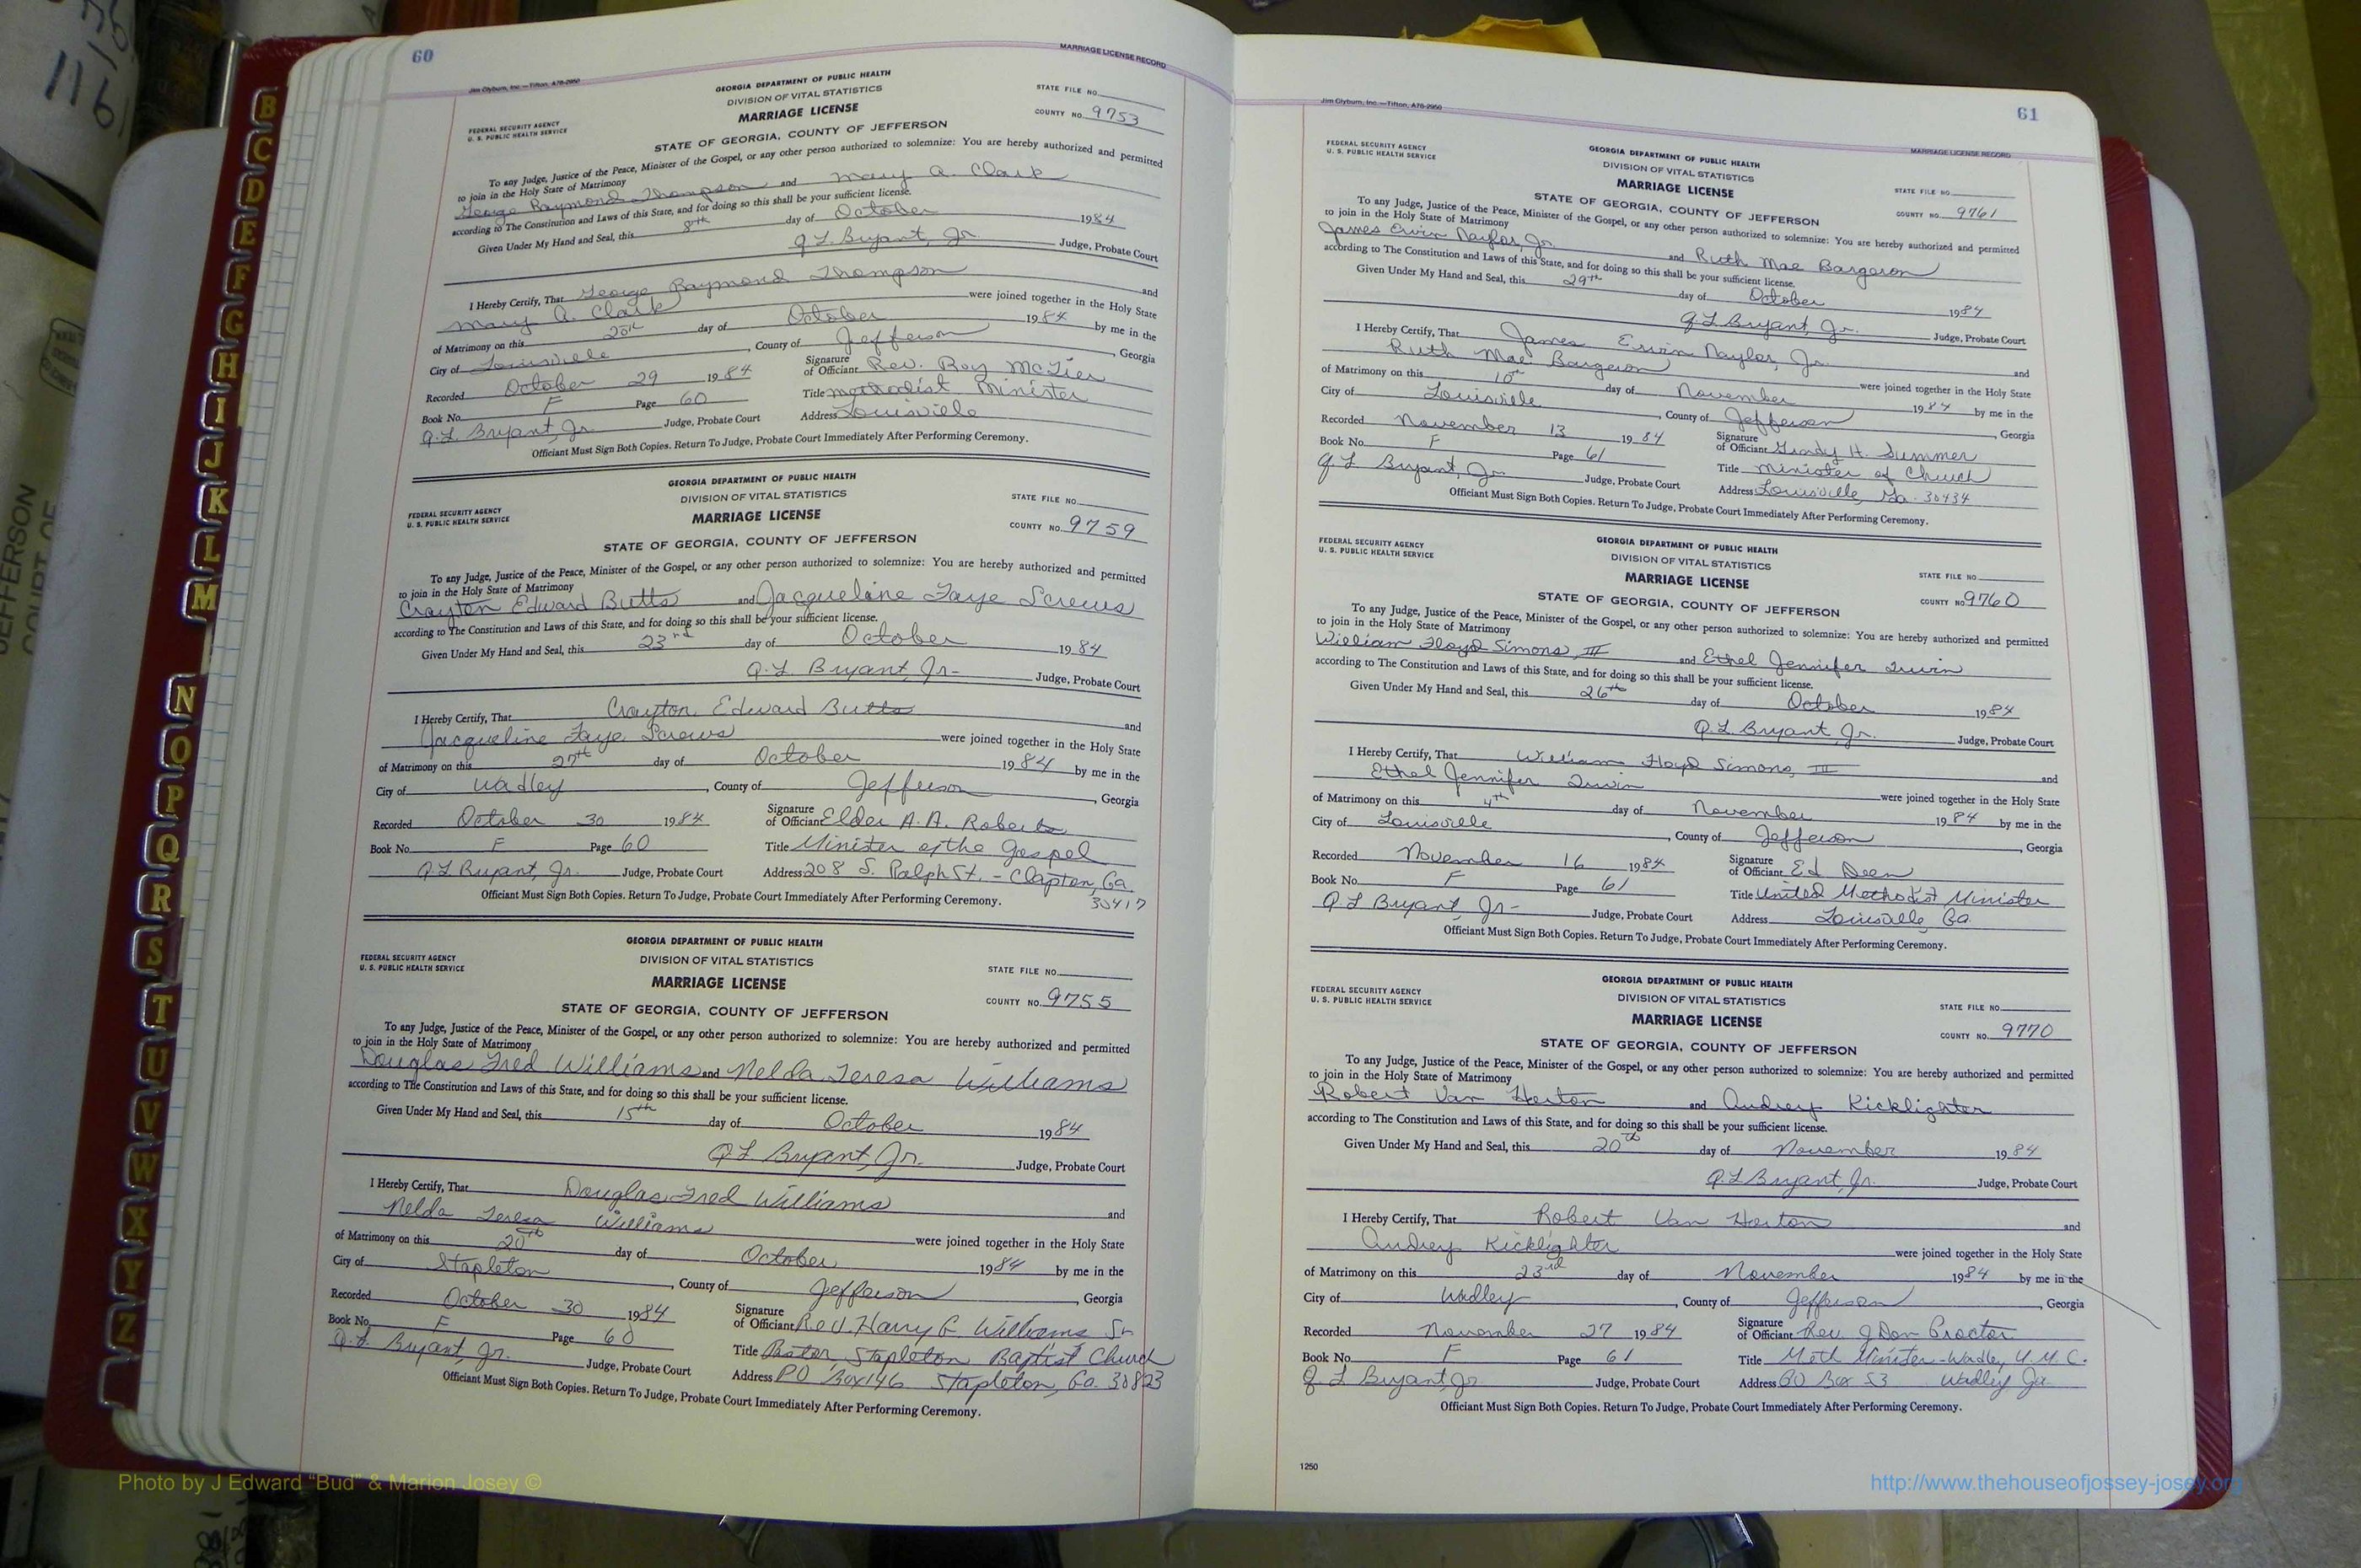 60
MARRIAGE LICENSE RECORD
Jim Clyburn, Inc.—Tifton, A76-2950
GEORGIA DEPARTMENT OF PUBLIC HEALTH
DIVISION OF VITAL STATISTICS
MARRIAGE LICENSE
STATE OF GEORGIA, COUNTY OF JEFFERSON
FEDERAL SECURITY AGENCY
U. S. PUBLIC HEALTH SERVICE
STATE FILE NO.
COUNTY NO. 9753
To any Judge, Justice of the Peace, Minister of the Gospel, or any other person authorized to solemnize: You are hereby authorized and permitted
to join in the Holy State of Matrimony
George Raymond Thompson and Mary A. Clark
according to The Constitution and Laws of this State, and for doing so this shall be your sufficient license.
Given Under My Hand and Seal, this 8th day of October 1984
Q.L. Bryant, Jr. Judge, Probate Court
I Hereby Certify, That George Raymond Thompson and
Mary A. Clark were joined together in the Holy State
of Matrimony on this 20th day of October 1984 by me in the
City of Louisville, County of Jefferson, Georgia
Recorded October 29 1984 Signature of Officiant Rev. Roy McTier
Book No. F Page 60 Title Methodist Minister
Q.L. Bryant, Jr. Judge, Probate Court Address Louisville
Officiant Must Sign Both Copies. Return To Judge, Probate Court Immediately After Performing Ceremony.
GEORGIA DEPARTMENT OF PUBLIC HEALTH
DIVISION OF VITAL STATISTICS
MARRIAGE LICENSE
STATE OF GEORGIA, COUNTY OF JEFFERSON
FEDERAL SECURITY AGENCY
U. S. PUBLIC HEALTH SERVICE
STATE FILE NO.
COUNTY NO. 9759
To any Judge, Justice of the Peace, Minister of the Gospel, or any other person authorized to solemnize: You are hereby authorized and permitted
to join in the Holy State of Matrimony
Crayton Edward Butts and Jacqueline Faye Screws
according to The Constitution and Laws of this State, and for doing so this shall be your sufficient license.
Given Under My Hand and Seal, this 23rd day of October 1984
Q.L. Bryant, Jr. Judge, Probate Court
I Hereby Certify, That Crayton Edward Butts and
Jacqueline Faye Screws were joined together in the Holy State
of Matrimony on this 27th day of October 1984 by me in the
City of Wadley, County of Jefferson, Georgia
Recorded October 30 1984 Signature of Officiant Elder A.A. Roberts
Book No. F Page 60 Title Minister of the Gospel
Q L Bryant, Jr. Judge, Probate Court Address 208 S. Ralph St. - Claxton, Ga.
30417
Officiant Must Sign Both Copies. Return To Judge, Probate Court Immediately After Performing Ceremony.
GEORGIA DEPARTMENT OF PUBLIC HEALTH
DIVISION OF VITAL STATISTICS
MARRIAGE LICENSE
STATE OF GEORGIA, COUNTY OF JEFFERSON
FEDERAL SECURITY AGENCY
U. S. PUBLIC HEALTH SERVICE
STATE FILE NO.
COUNTY NO. 9755
To any Judge, Justice of the Peace, Minister of the Gospel, or any other person authorized to solemnize: You are hereby authorized and permitted
to join in the Holy State of Matrimony
Douglas Fred Williams and Nelda Teresa Williams
according to The Constitution and Laws of this State, and for doing so this shall be your sufficient license.
Given Under My Hand and Seal, this 15th day of October 1984
Q L Bryant, Jr. Judge, Probate Court
I Hereby Certify, That Douglas Fred Williams and
Nelda Teresa Williams were joined together in the Holy State
of Matrimony on this 20th day of October 1984 by me in the
City of Stapleton, County of Jefferson, Georgia
Recorded October 30 1984 Signature of Officiant Rev. Harry G Williams Sr
Book No. F Page 60 Title Pastor Stapleton Baptist Church
Q.L. Bryant, Jr. Judge, Probate Court Address PO Box 146 Stapleton, Ga. 30823
Officiant Must Sign Both Copies. Return To Judge, Probate Court Immediately After Performing Ceremony.
Jim Clyburn, Inc.—Tifton, A76-2950
61
MARRIAGE LICENSE RECORD
FEDERAL SECURITY AGENCY
U. S. PUBLIC HEALTH SERVICE
GEORGIA DEPARTMENT OF PUBLIC HEALTH
DIVISION OF VITAL STATISTICS
MARRIAGE LICENSE
STATE OF GEORGIA, COUNTY OF JEFFERSON
STATE FILE NO.
COUNTY NO. 9761
To any Judge, Justice of the Peace, Minister of the Gospel, or any other person authorized to solemnize: You are hereby authorized and permitted
to join in the Holy State of Matrimony
James Ervin Naylor, Jr. and Ruth Mae Bargeron
according to The Constitution and Laws of this State, and for doing so this shall be your sufficient license.
Given Under My Hand and Seal, this 29th day of October 1984
Q L Bryant, Jr. Judge, Probate Court
I Hereby Certify, That James Ervin Naylor, Jr. and
Ruth Mae Bargeron were joined together in the Holy State
of Matrimony on this 10th day of November 1984 by me in the
City of Louisville, County of Jefferson, Georgia
Recorded November 13 1984 Signature of Officiant H. Summer
Book No. F Page 61 Title Minister of Church
Q L Bryant, Jr. Judge, Probate Court Address Louisville, Ga. 30434
Officiant Must Sign Both Copies. Return To Judge, Probate Court Immediately After Performing Ceremony.
FEDERAL SECURITY AGENCY
U. S. PUBLIC HEALTH SERVICE
GEORGIA DEPARTMENT OF PUBLIC HEALTH
DIVISION OF VITAL STATISTICS
MARRIAGE LICENSE
STATE OF GEORGIA, COUNTY OF JEFFERSON
STATE FILE NO.
COUNTY NO. 9760
To any Judge, Justice of the Peace, Minister of the Gospel, or any other person authorized to solemnize: You are hereby authorized and permitted
to join in the Holy State of Matrimony
William Floyd Simons, III and Ethel Jennifer Irwin
according to The Constitution and Laws of this State, and for doing so this shall be your sufficient license.
Given Under My Hand and Seal, this 26th day of October 1984
Q.L. Bryant, Jr. Judge, Probate Court
I Hereby Certify, That William Floyd Simons, III and
Ethel Jennifer Irwin were joined together in the Holy State
of Matrimony on this 4th day of November 1984 by me in the
City of Louisville, County of Jefferson, Georgia
Recorded November 16 1984 Signature of Officiant Ed Deen
Book No. F Page 61 Title United Methodist Minister
Q L Bryant, Jr. Judge, Probate Court Address Louisville, Ga.
Officiant Must Sign Both Copies. Return To Judge, Probate Court Immediately After Performing Ceremony.
FEDERAL SECURITY AGENCY
U. S. PUBLIC HEALTH SERVICE
GEORGIA DEPARTMENT OF PUBLIC HEALTH
DIVISION OF VITAL STATISTICS
MARRIAGE LICENSE
STATE OF GEORGIA, COUNTY OF JEFFERSON
STATE FILE NO.
COUNTY NO. 9770
To any Judge, Justice of the Peace, Minister of the Gospel, or any other person authorized to solemnize: You are hereby authorized and permitted
to join in the Holy State of Matrimony
Robert Van Horton and Audrey Kicklighter
according to The Constitution and Laws of this State, and for doing so this shall be your sufficient license.
Given Under My Hand and Seal, this 20th day of November 1984
Q.L Bryant, Jr. Judge, Probate Court
I Hereby Certify, That Robert Van Horton and
Audrey Kicklighter were joined together in the Holy State
of Matrimony on this 23rd day of November 1984 by me in the
City of Wadley, County of Jefferson, Georgia
Recorded November 27 1984 Signature of Officiant Rev. J Don Proctor
Book No. F Page 61 Title Meth Minister - Wadley U.M.C.
Q L Bryant, Jr Judge, Probate Court Address PO Box 53 Wadley Ga
Officiant Must Sign Both Copies. Return To Judge, Probate Court Immediately After Performing Ceremony.
1250
B
C
D
E
F
G
H
I
J
K
L
M
N
O
P
Q
R
S
T
U
V
W
X
Y
Z
JEFFERSON
COURT OF
Photo by J Edward “Bud” & Marion Josey ©
http://www.thehouseofjossey-josey.org